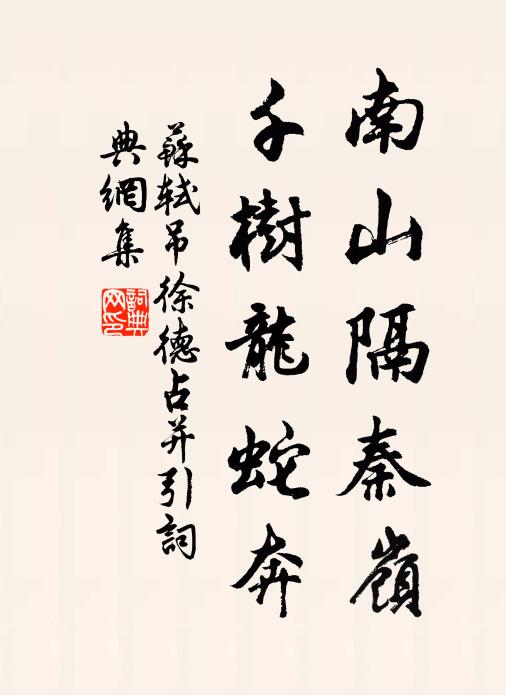 南山隔秦嶺
千樹龍蛇奔
蘇軾吊徐德占并引詞
典網集
詞典網印